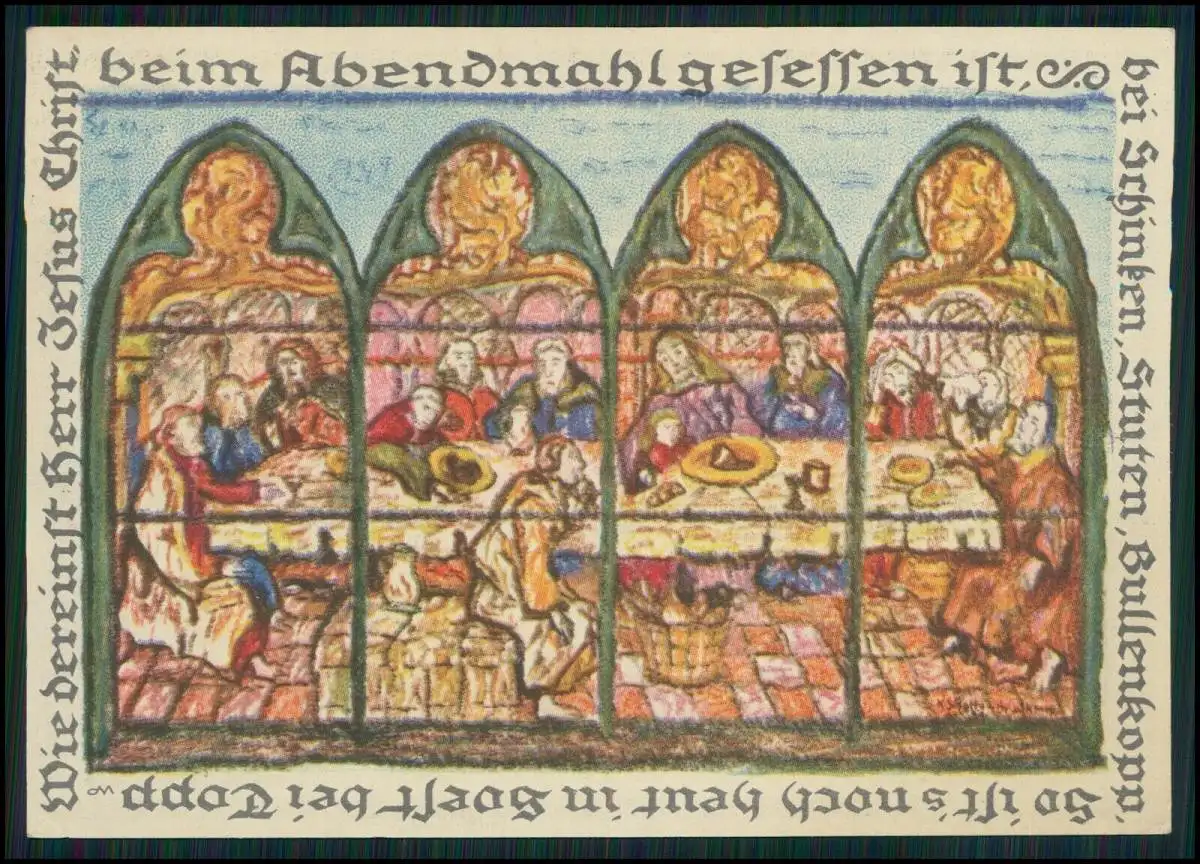 Wie dereinst Herr Jesus Christ,
beim Abendmahl gesessen ist,
bei Schinken, Stuten, Bullenkopp,
So ist's noch heut in Soest bei Topp